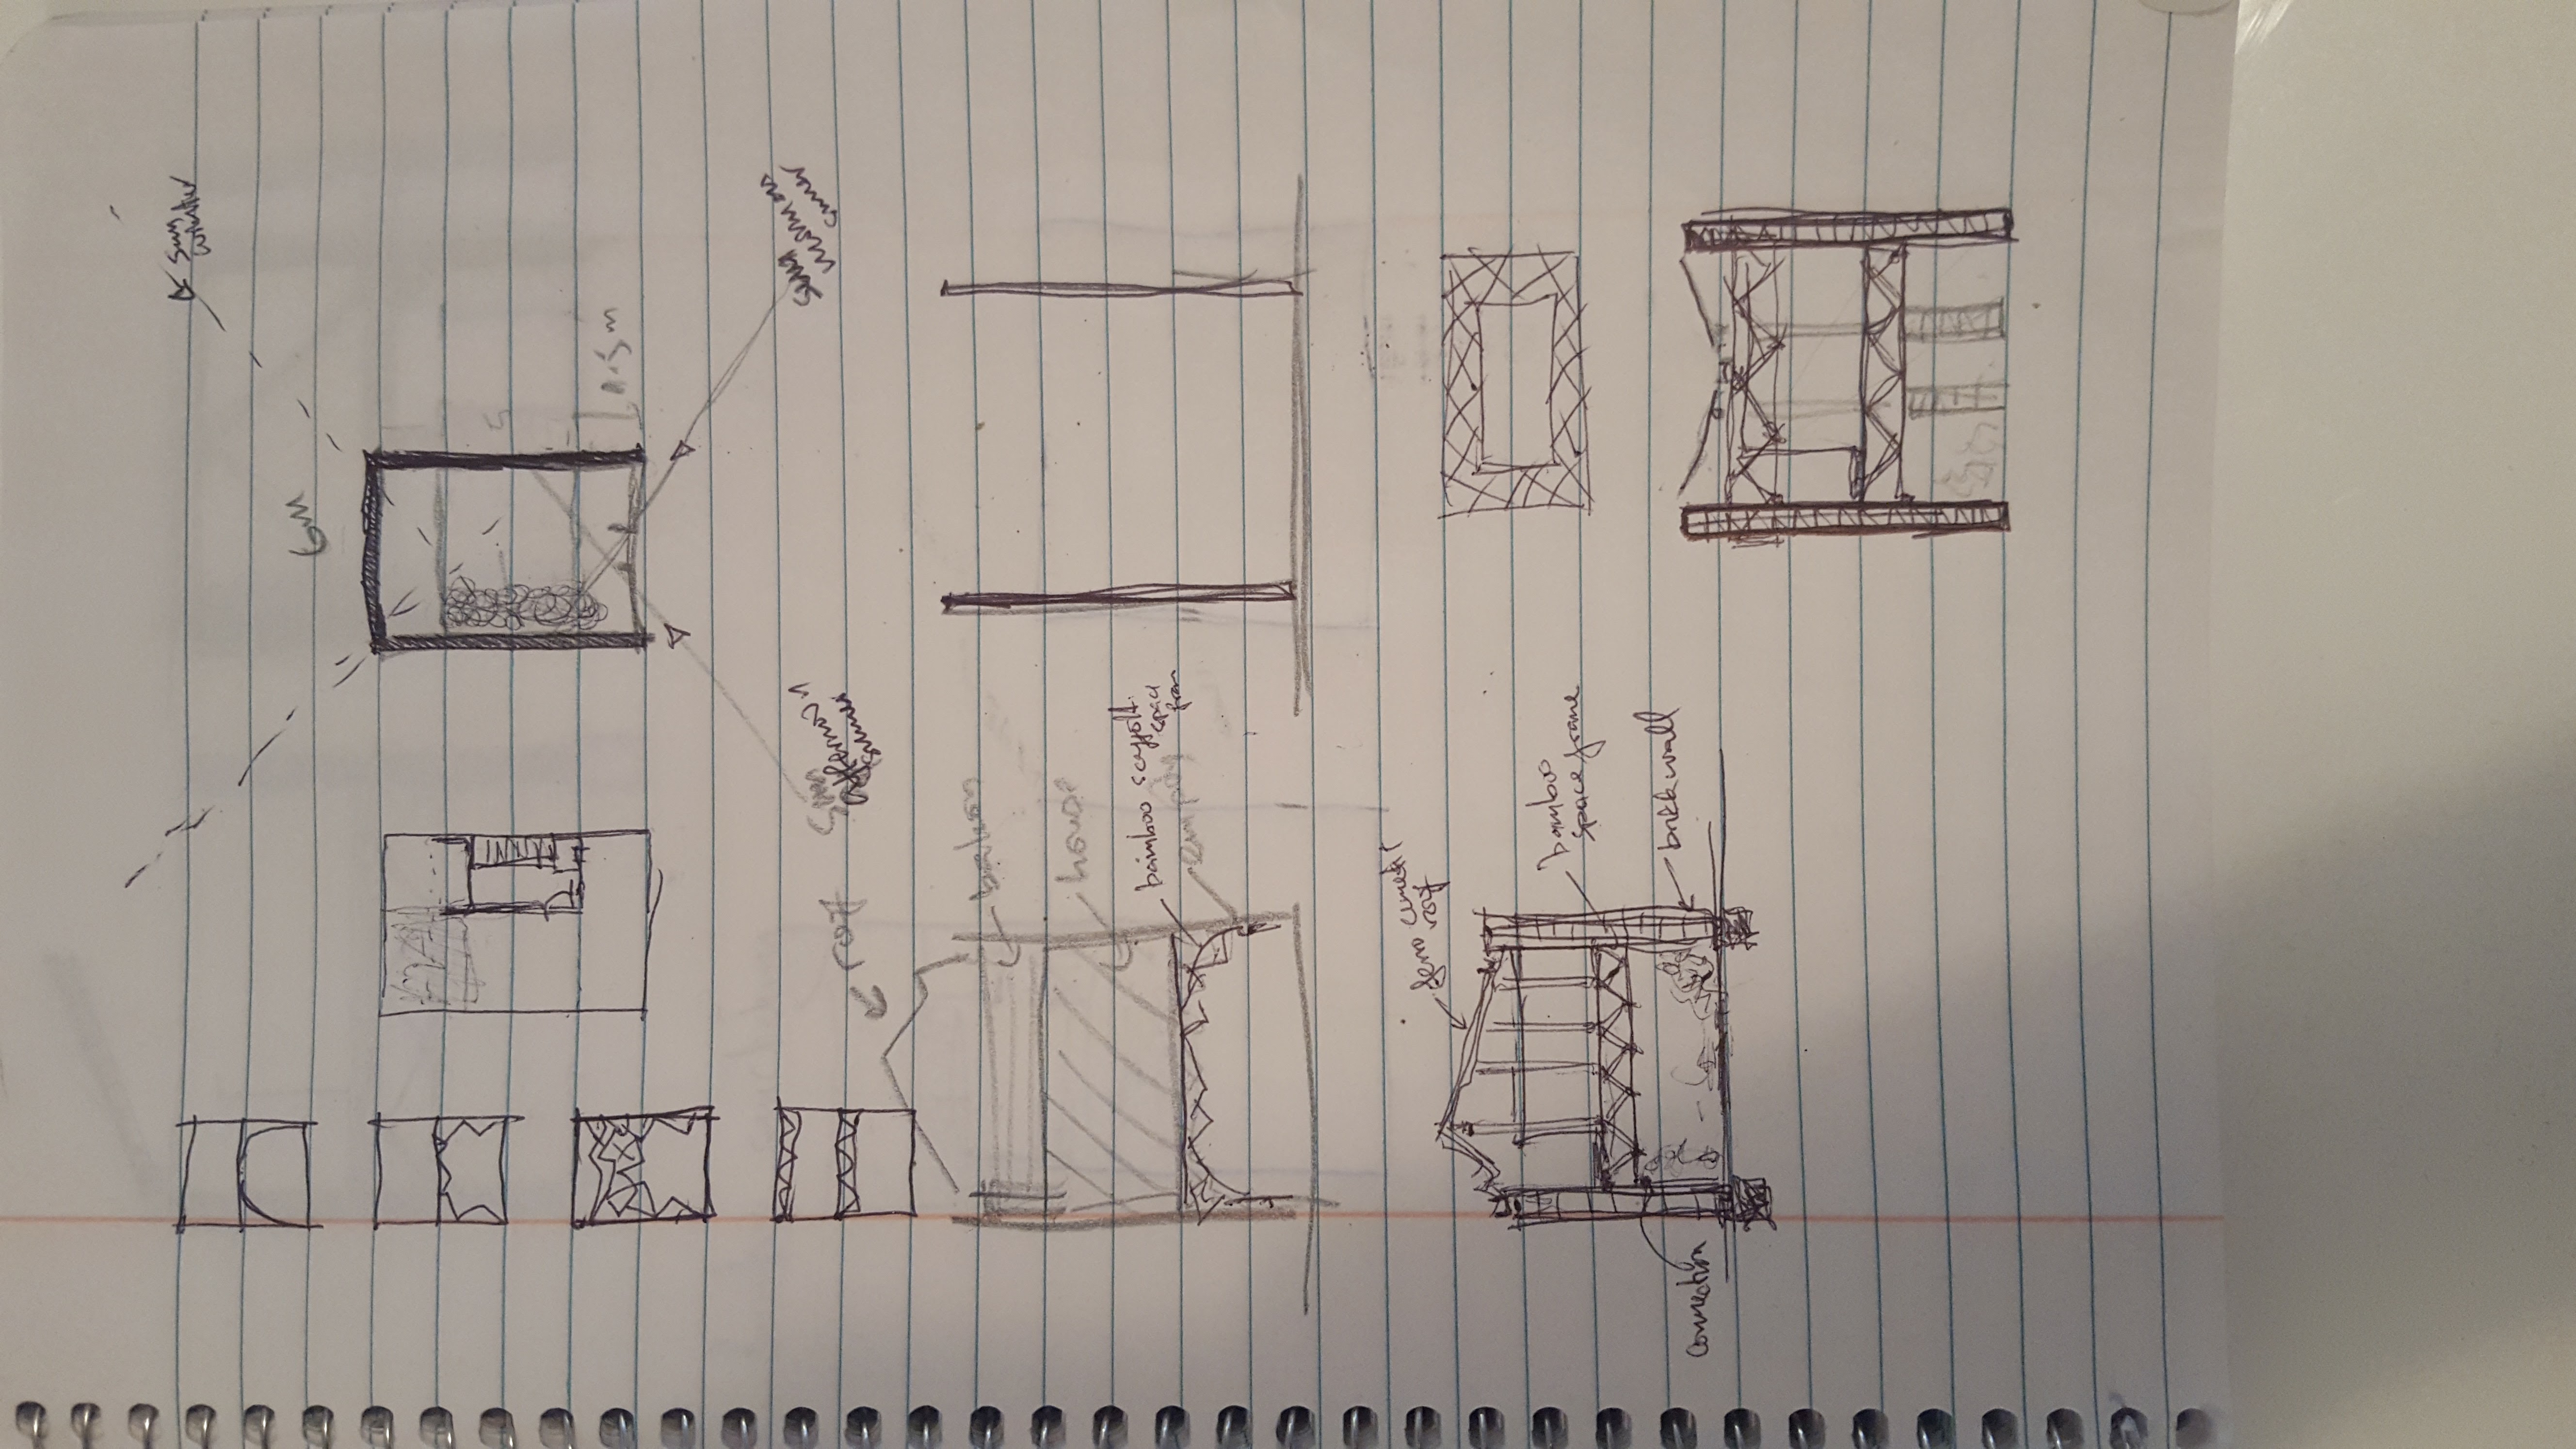 sun
winter
6m
5
1.5m
sun
afternoon
summer
sun
morning
sumer
roof
balkon
house
bamboo scaffolt.
spac
fram
empty
ferro cement
roof
bamboo
space frame
connection
brickwall